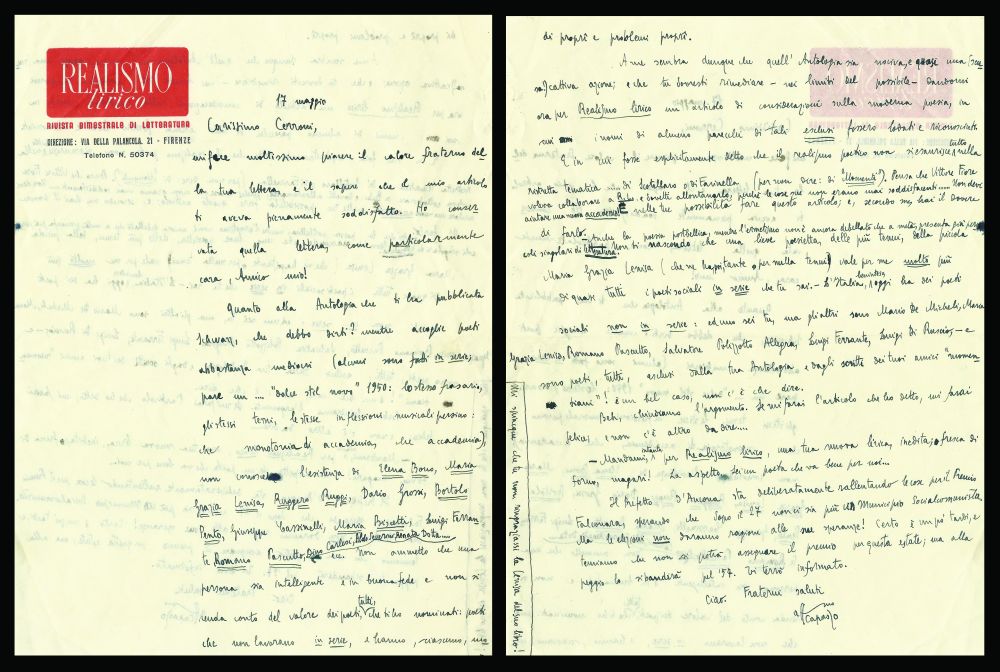 REALISMO
lirico
RIVISTA BIMESTRALE DI LETTERATURA
DIREZIONE: VIA DELLA PALANCOLA, 21 - FIRENZE
Telefono N. 50374
17 maggio
Carissimo Cerroni,
mi fece moltissimo piacere il valore fraterno del
la tua lettera, e il sapere che il mio articolo
ti aveva pienamente soddisfatto. Ho conser
vata quella lettera, come particolarmente
cara, Amico mio!
Quanto alla Antologia che ti ha pubblicata
Schwarz, che debbo dirti? mentre accoglie poeti
abbastanza mediocri (alcuni sono fatti in serie,
pare un .... "dolce stil novo" 1950: lo stesso frasario,
gli stessi temi, le stesse inflessioni musicali persino:
che monotonia di accademia, che accademia),
non conosce l'esistenza di Elena Bono, Maria
Grazia Lenisa, Ruggero Ruggi, Dario Grossi, Bortolo
Pento, Giuseppe Cassinelli, Maria Bisetti, Luigi Ferran
te Romano Pascutto, Dino Carlesi, Aldo Guerrini, Renata Dotta....
ecc. non ammetto che una
persona sia intelligente e in buona fede e non si
renda conto del valore dei poeti, tutti, che ti ho nominati: poeti
che non lavorano in serie, e hanno, ciascuno, mo
di propri e problemi propri.
A me sembra dunque che quell'Antologia sia nociva, e quasi una
cattiva azione; e che tu dovresti rimediare - nei limiti del possibile - dandomi
ora per Realismo lirico un articolo di considerazioni sulla moderna poesia, in
cui i nomi di almeno parecchi di tali esclusi fossero lodati e riconosciuti.
E in cui fosse esplicitamente detto che il realismo poetico non si esaurisce tutto nella
ristretta tematica di Scotellaro o di Farinella (per non dire: di "Momenti"). Pensa che Vittore Fiore
voleva collaborare a e dovetti allontanarlo, perché le cose sue non erano mai soddisfacenti..... Non deve
aiutare una nuova accademia! È nelle tue possibilità fare questo articolo; e, secondo me, hai il dovere
di farlo.
Non ti nascondo che una lieve poesietta, delle più tenui, della piccola
Maria Grazia Lenisa (che ne ha portante e per nulla tenui) vale per me molto più
di quasi tutti i poeti sociali in serie che tu sai. - L'Italia, oggi ha dei poeti
sociali non in serie: ed uno sei tu, ma gli altri sono Mario De Micheli, Maria
Grazia Lenisa, Romano Pascutto, Salvatore Polizzotto Allegra, Luigi Ferrante, Luigi Di Ruscio, - e
sono, questi, tutti, esclusi dalla tua Antologia e dagli scritti dei tuoi amici "momen
tiani"! è un bel caso, non c'è che dire.
Beh, chiudiamo l'argomento. Se mi farai l'articolo che ho detto, mi farai
felice, e non c'è altro da dire....
- Mandami, per Realismo lirico, una tua nuova lirica, inedita, fresca di
forno, magari! La aspetto. Sei un poeta che va bene per noi...
Il Prefetto d'Ancona sta deliberatamente rallentando le cose per il Premio
Falconara, sperando che dopo il 27 non ci sia più un Municipio Socialcomunista.
Ma le elezioni non daranno ragione alle sue speranze! Certo è un po' tardi, e
temiamo che non si potrà assegnare il premio per questa estate; ma alla
peggio lo si bandirà pel '57. Ti terrò informato.
Ciao. Fraterni saluti
Capasso
Mi spiacque che tu non ringraziassi la Lenisa del suo libro!